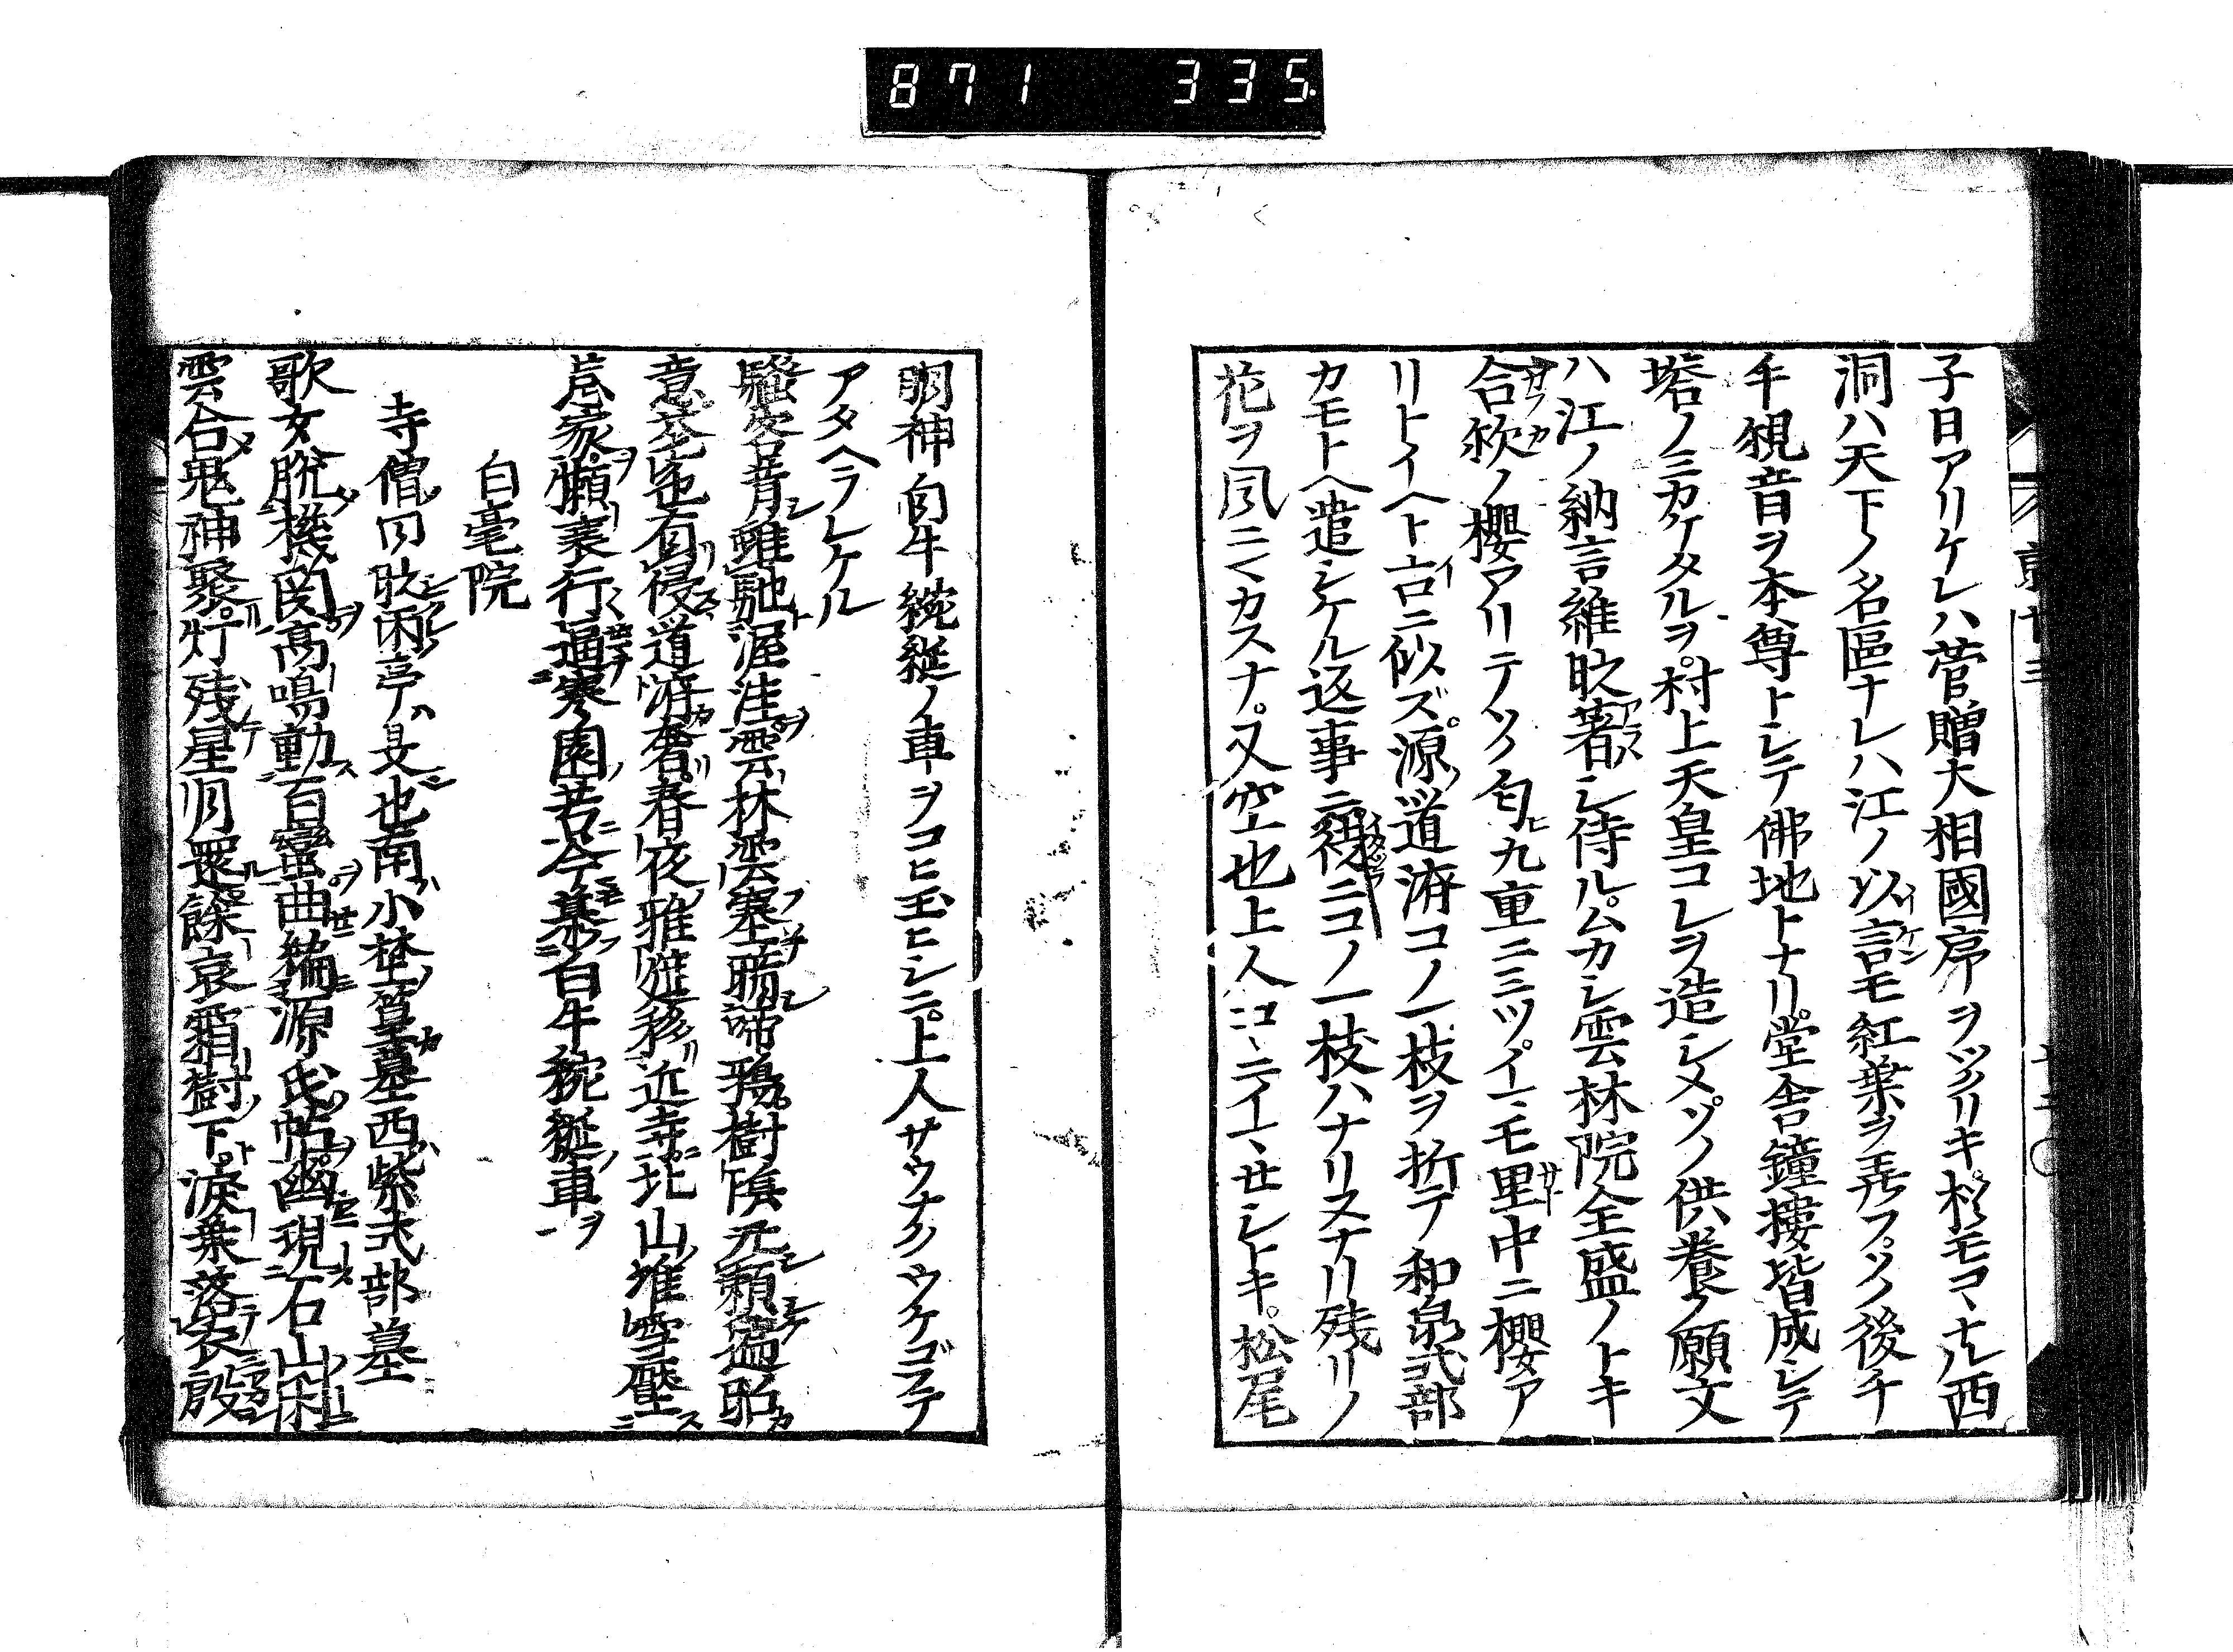 871 335
子日アリケレハ菅贈大相國序ヲツクリキ松モコヽナル西
洞ハ天下ノ名區ナレハ江ノ以言モ紅葉ヲ弄フソノ後千
手観音ヲ本尊トシテ佛地トナリ堂舎鐘樓皆成シテ
塔ノミカケタルヲ村上天皇コレヲ造シメソノ供養ノ願文
ハ江ノ納言維時著シ侍ルムカシ雲林院全盛ノトキ
合歓ノ櫻アリテソノ匂ヒ九重ニミツイマモ里中ニ櫻ア
リトイヘト古ニ似ズ源道済コノ一枝ヲ折テ和泉式部
カモトヘ遣シケル返事ニ徒ニコノ一枝ハナリヌナリ残リノ
花ヲ風ニマカスナ又空也上人コヽニイマセシトキ松尾
明神白牛 車ヲコヒ玉ヒシニ上人サウナクウケゴフテ
アタヘラレケル
騒客昔雖馳渥洼雲林雲塞土 啼鴉樹陰元頼遍昭
意花也有侵道済奢春夜雅筵移近寺北山堆雪壓
荒家懶裏行逼寒園苦今慕白牛 車
白毫院
寺僧曰時雨亭是也南小埜篁墓西紫式部墓
歌女脱機関高鳴動百蛮曲 源氏帖幽現石山
雲合鬼神聚灯残星月 餘哀霜樹下涙葉落衣